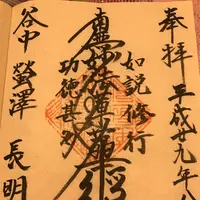 奉拝
平成廿九年八
如説修行
南無妙法蓮華経
功徳甚多
谷中
螢澤
長明